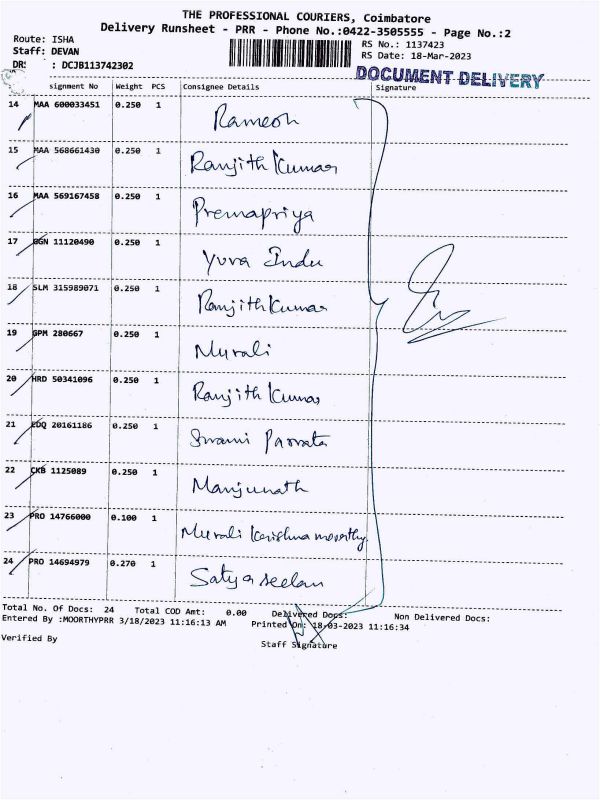 THE PROFESSIONAL COURIERS, Coimbatore
Delivery Runsheet - PRR - Phone No.:0422-3505555 - Page No.:2
Route: ISHA
RS No.: 1137423
Staff: DEVAN
RS Date: 18-Mar-2023
DR: : DCJB113742302
DOCUMENT DELIVERY
signment No Weight PCS Consignee Details Signature
14 MAA 600033451 0.250 1 Ramesh
15 MAA 568661430 0.250 1 Ranjith Kumar
16 MAA 569167458 0.250 1 Premapriya
17 GGN 11120490 0.250 1 Yuva Indu
18 SLM 315989071 0.250 1 Ranjith Kumar
19 GPM 280667 0.250 1 Murali
20 HRD 50341096 0.250 1 Ranjith Kumar
21 EDQ 20161186 0.250 1 Swami
22 CKB 1125089 0.250 1 Manjunath
23 PRO 14766000 0.100 1 Murali Krishna moorthy
24 PRO 14694979 0.270 1 Satyaseelan
Total No. Of Docs: 24 Total COD Amt: 0.00 Delivered Docs: Non Delivered Docs:
Entered By :MOORTHYPRR 3/18/2023 11:16:13 AM Printed On: 18-03-2023 11:16:34
Verified By Staff Signature